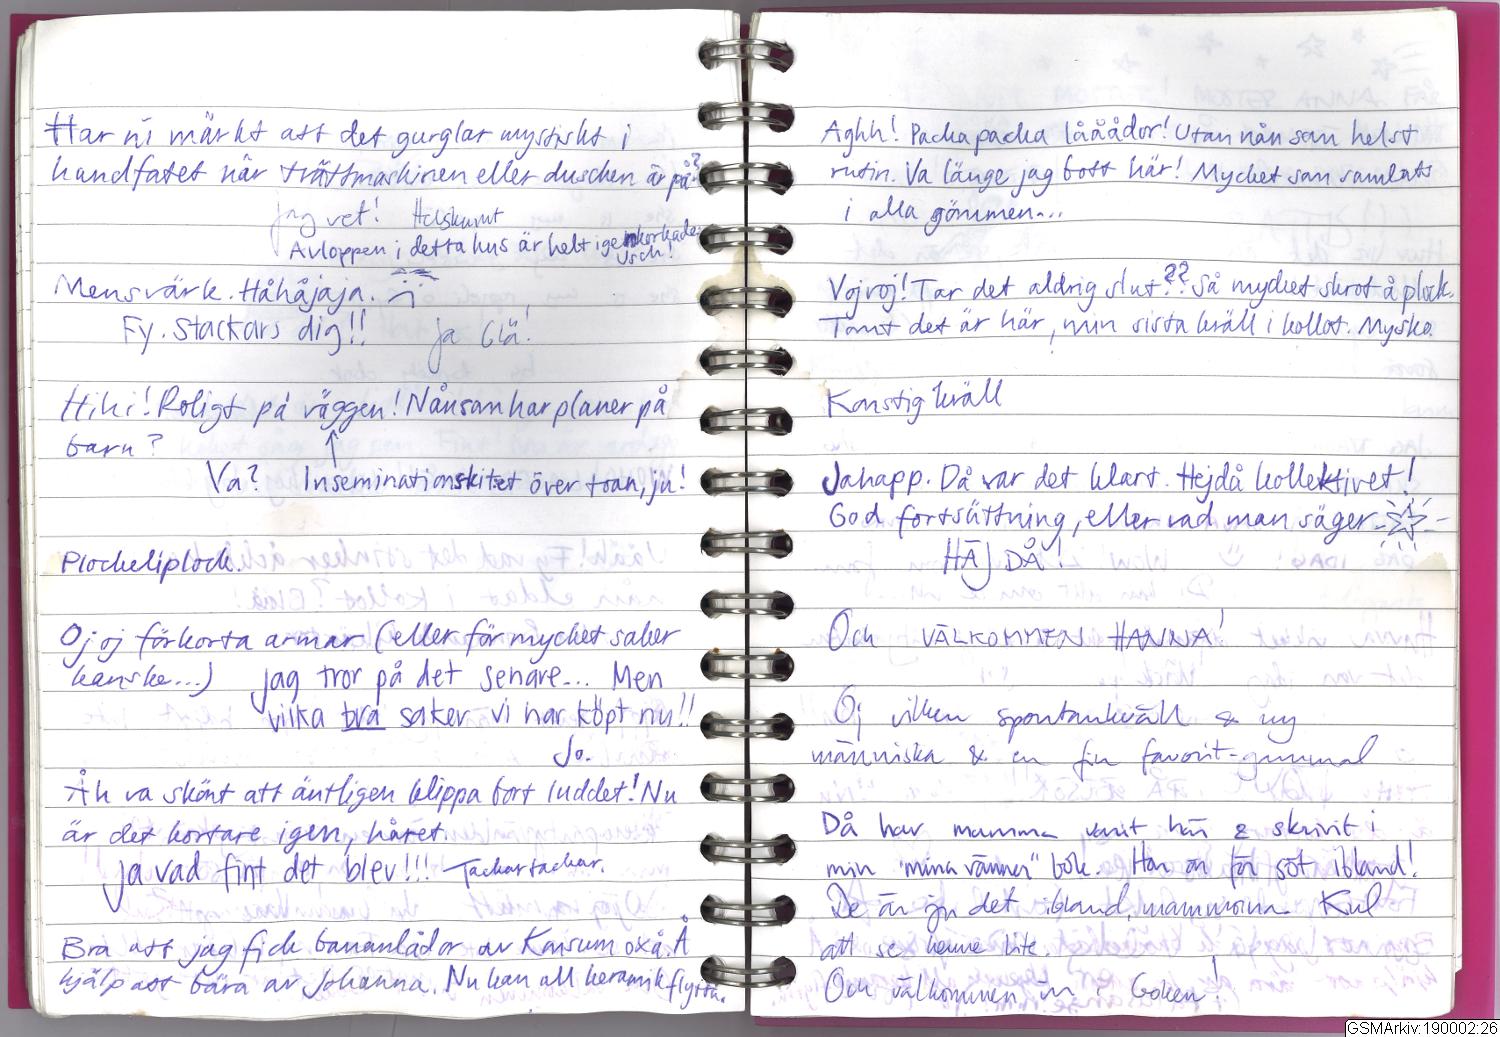 Har ni märkt att det gurglar mystiskt i
handfatet när tvättmaskinen eller duschen är på?
Jag vet! Helskumt
Avloppen i detta hus är helt igenkorkade.
Usch!
Mensvärk. Håhåjaja.
Fy. Stackars dig!! Ja Blä!
Hihi! Roligt på väggen! Nånsan har planer på
barn?
Va? Inseminationskitet över toan, ju!
Plockeliplock.
Oj oj förkorta armar (eller för mycket saker
kanske...) Jag tror på det senare... Men
vilka bra saker vi har köpt nu!!
Jo.
Åh va skönt att äntligen klippa bort luddet! Nu
är det kortare igen, håret.
Ja vad fint det blev!!! Tackartackar.
Bra att jag fick bananlådor av Konsum oxå. Å
hjälp att bära av Johanna. Nu kan all keramik flytta.
Aghh! Packa packa låååådor! Utan nån som helst
rutin. Va länge jag bott här! Mycket som samlats
i alla gömmen...
Vojvoj! Tar det aldrig slut?? Så mycket skrot å plock.
Tomt det är här, min sista kväll i kollot. Mysko.
Konstig kväll
Jahapp. Då var det klart. Hejdå kollektivet!
God fortsättning, eller vad man säger
HÄJ DÅ!
Och VÄLKOMMEN HANNA!
Oj vilken spontankväll & ny
människa & en fin favorit-gammal
Då har mamma varit här & skrivit i
min "mina vänner" bok. Hon är för söt ibland!
De är ju det ibland, mammorna. Kul
att se henne lite.
Och välkommen in i boken!
GSMArkiv:190002:26